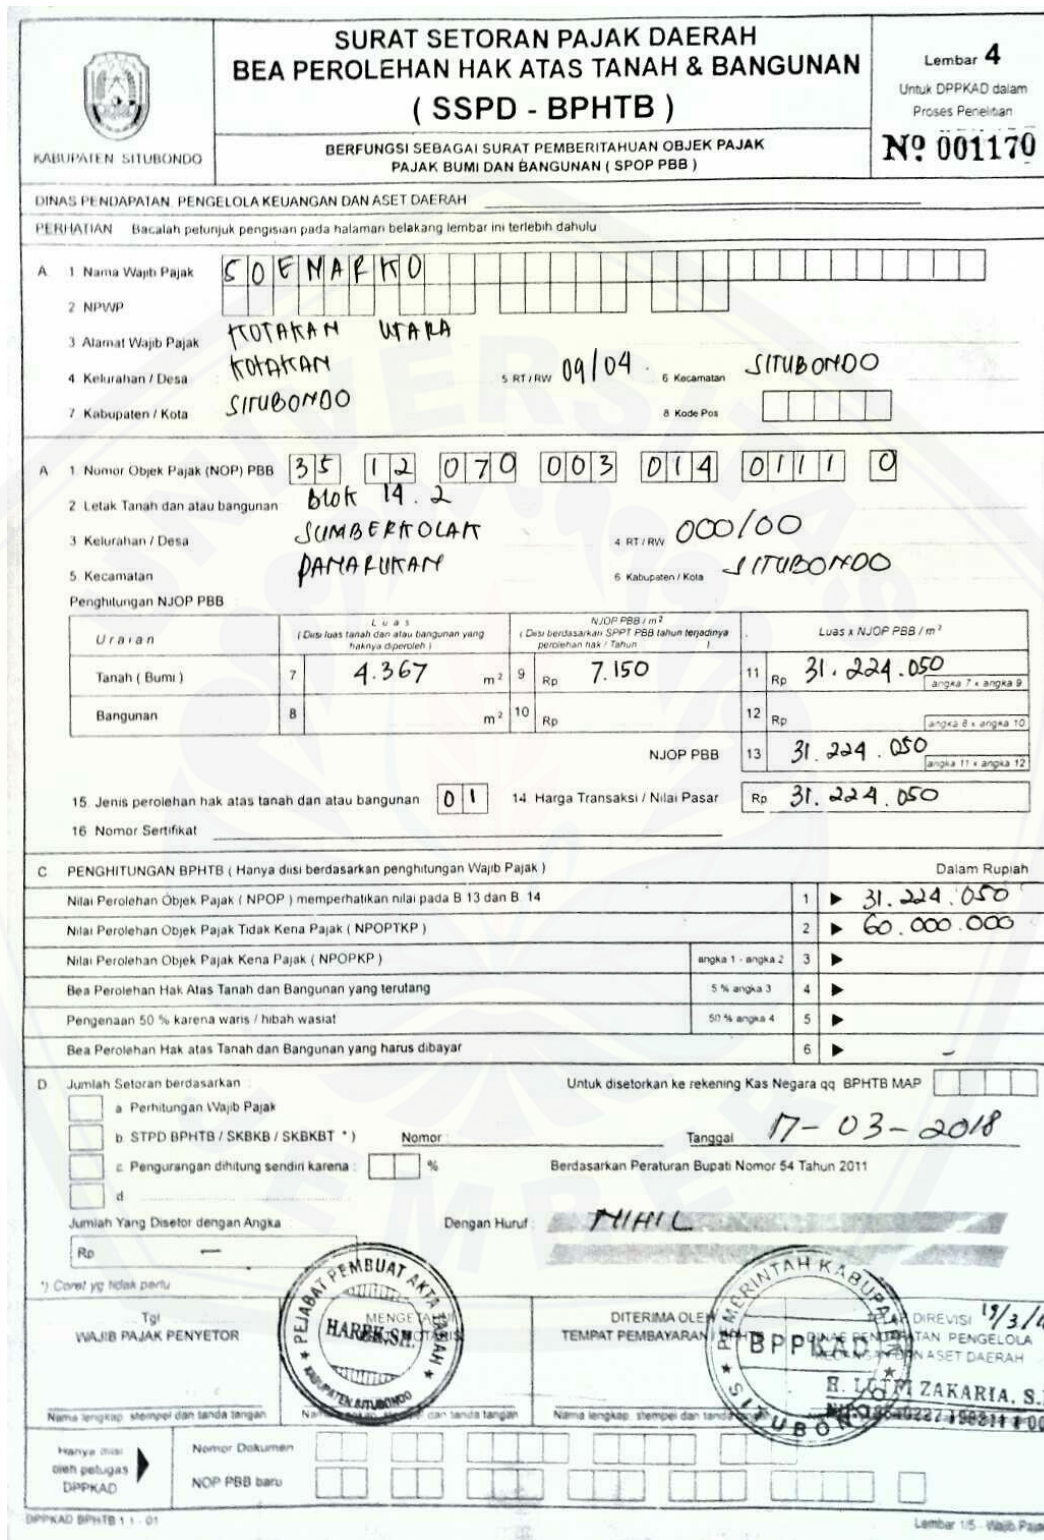 SURAT SETORAN PAJAK DAERAH
BEA PEROLEHAN HAK ATAS TANAH & BANGUNAN
( SSPD - BPHTB )
BERFUNGSI SEBAGAI SURAT PEMBERITAHUAN OBJEK PAJAK
PAJAK BUMI DAN BANGUNAN ( SPOP PBB )
KABUPATEN SITUBONDO
Lembar 4
Untuk DPPKAD dalam
Proses Penelitian
Nº 001170
DINAS PENDAPATAN PENGELOLA KEUANGAN DAN ASET DAERAH
PERHATIAN Bacalah petunjuk pengisian pada halaman belakang lembar ini terlebih dahulu
A 1 Nama Wajib Pajak SOEMARKO
2 NPWP
3 Alamat Wajib Pajak KOTAKAN UTARA
4 Kelurahan / Desa KOTAKAN 5 RT / RW 09/04 6 Kecamatan SITUBONDO
7 Kabupaten / Kota SITUBONDO 8 Kode Pos
A 1. Nomor Objek Pajak (NOP) PBB 35 12 070 003 014 0111 0
2 Letak Tanah dan atau bangunan blok 14.2
3 Kelurahan / Desa SUMBERKOLAK 4 RT / RW 000/00
5 Kecamatan PANARUKAN 6 Kabupaten / Kota SITUBONDO
Penghitungan NJOP PBB
Uraian
Luas
( Diisi luas tanah dan atau bangunan yang
haknya diperoleh )
NJOP PBB / m²
( Diisi berdasarkan SPPT PBB tahun terjadinya
perolehan hak / Tahun )
Luas x NJOP PBB / m²
Tanah ( Bumi ) 7 4.367 m² 9 Rp 7.150 11 Rp 31.224.050
angka 7 x angka 9
Bangunan 8 m² 10 Rp 12 Rp
angka 8 x angka 10
NJOP PBB 13 31.224.050
angka 11 x angka 12
15. Jenis perolehan hak atas tanah dan atau bangunan 01 14 Harga Transaksi / Nilai Pasar Rp 31.224.050
16 Nomor Sertifikat
C PENGHITUNGAN BPHTB ( Hanya diisi berdasarkan penghitungan Wajib Pajak ) Dalam Rupiah
Nilai Perolehan Objek Pajak ( NPOP ) memperhatikan nilai pada B 13 dan B 14 1 31.224.050
Nilai Perolehan Objek Pajak Tidak Kena Pajak ( NPOPTKP ) 2 60.000.000
Nilai Perolehan Objek Pajak Kena Pajak ( NPOPKP ) angka 1 - angka 2 3
Bea Perolehan Hak Atas Tanah dan Bangunan yang terutang 5 % angka 3 4
Pengenaan 50 % karena waris / hibah wasiat 50 % angka 4 5
Bea Perolehan Hak atas Tanah dan Bangunan yang harus dibayar 6 -
D Jumlah Setoran berdasarkan : Untuk disetorkan ke rekening Kas Negara qq BPHTB MAP
a Perhitungan Wajib Pajak
b. STPD BPHTB / SKBKB / SKBKBT *) Nomor : Tanggal 17-03-2018
c. Pengurangan dihitung sendiri karena : % Berdasarkan Peraturan Bupati Nomor 54 Tahun 2011
d
Jumlah Yang Disetor dengan Angka Dengan Huruf : NIHIL
Rp -
*) Coret yg tidak perlu
Tgl
WAJIB PAJAK PENYETOR
PEJABAT PEMBUAT AKTA TANAH
HARBK.SH.
KABUPATEN SITUBONDO
DITERIMA OLEH
TEMPAT PEMBAYARAN
PEMERINTAH KABUPATEN
BPPKAD
SITUBONDO
DIREVISI
PENGELOLA
DAN ASET DAERAH
ZAKARIA, S.
Nama lengkap, stempel dan tanda tangan
Nama lengkap, stempel dan tanda
Hanya diisi
oleh petugas
DPPKAD
Nomor Dokumen
NOP PBB baru
DPPKAD BPHTB 1 1 - 01
Lembar 1/5 - Wajib Pajak